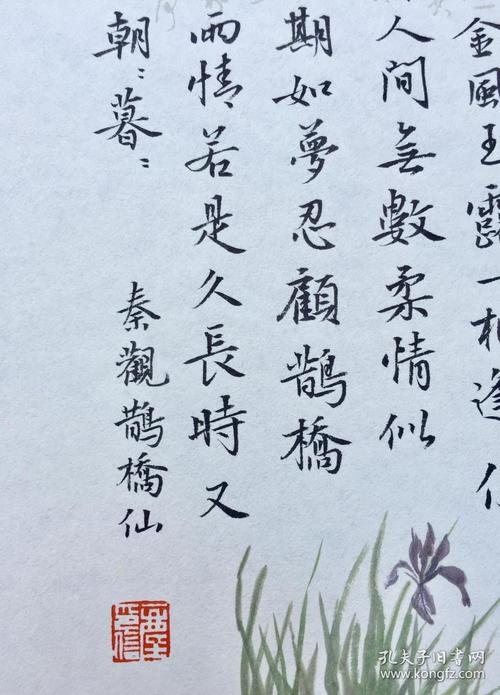 金風玉露一相逢
人間無數柔情似
期如夢忍顧鵲橋
兩情若是久長時又
朝〻暮〻
秦觀鵲橋仙
孔夫子旧书网
www.kongfz.com